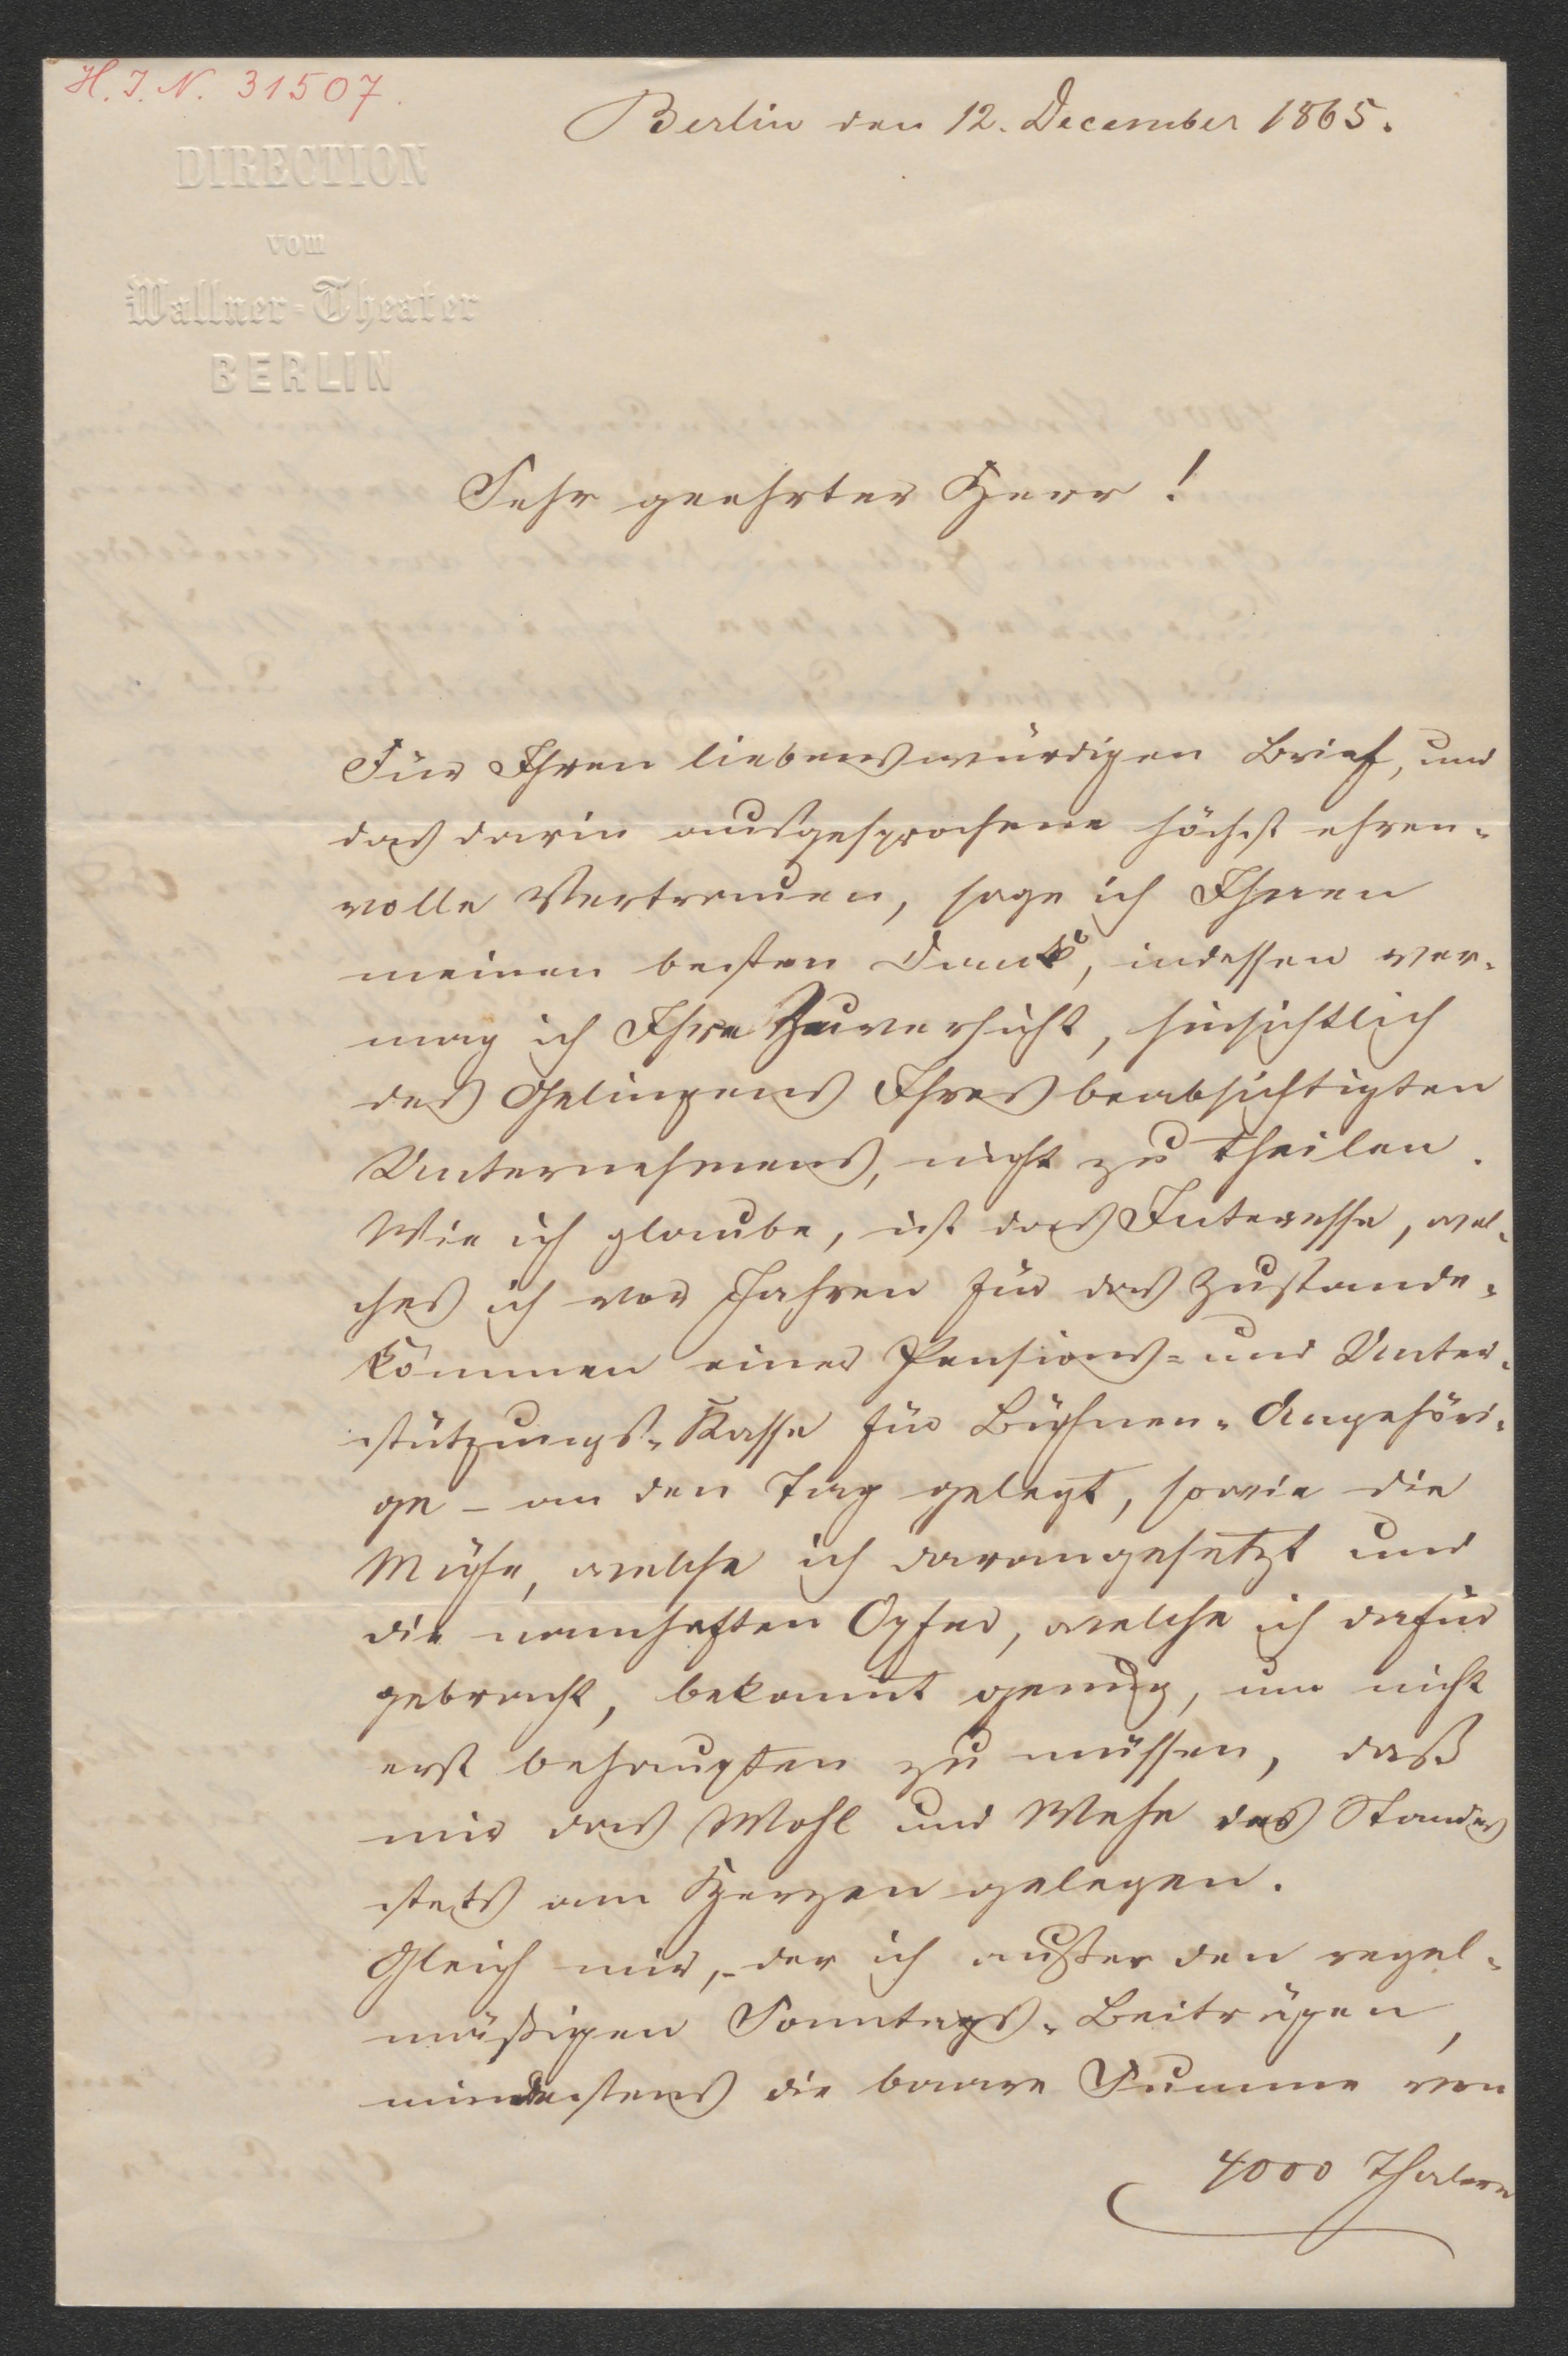 H. I. N. 31507.
Berlin den 12. December 1865.
DIRECTION
vom
Wallner-Theater
BERLIN
Sehr geehrter Herr!
Für Ihren liebenswürdigen Brief, und
das darin ausgesprochene höchst ehren-
volle Vertrauen, sage ich Ihnen
meinen besten Dank, indessen ver-
mag ich Ihre Zuversicht, hinsichtlich
des Gelingens Ihres beabsichtigten
Unternehmens, nicht zu theilen.
Wie ich glaube, ist das Interesse, wel-
ches ich vor Jahren für das Zustande-
kommen einer Pensions- und Unter-
stützungs-Kasse für Bühnen-Angehöri-
ge - an den Tag gelegt, sowie die
Mühe, welche ich darangesetzt und
die namhaften Opfer, welche ich dafür
gebracht, bekannt genug, um nicht
erst behaupten zu müssen, daß
mir das Wohl und Wehe des Standes
stets am Herzen gelegen.
Gleich mir, - der ich außer den regel-
mäßigen Sonntags-Beiträgen,
mindestens die baare Summe von
4000 Thalern